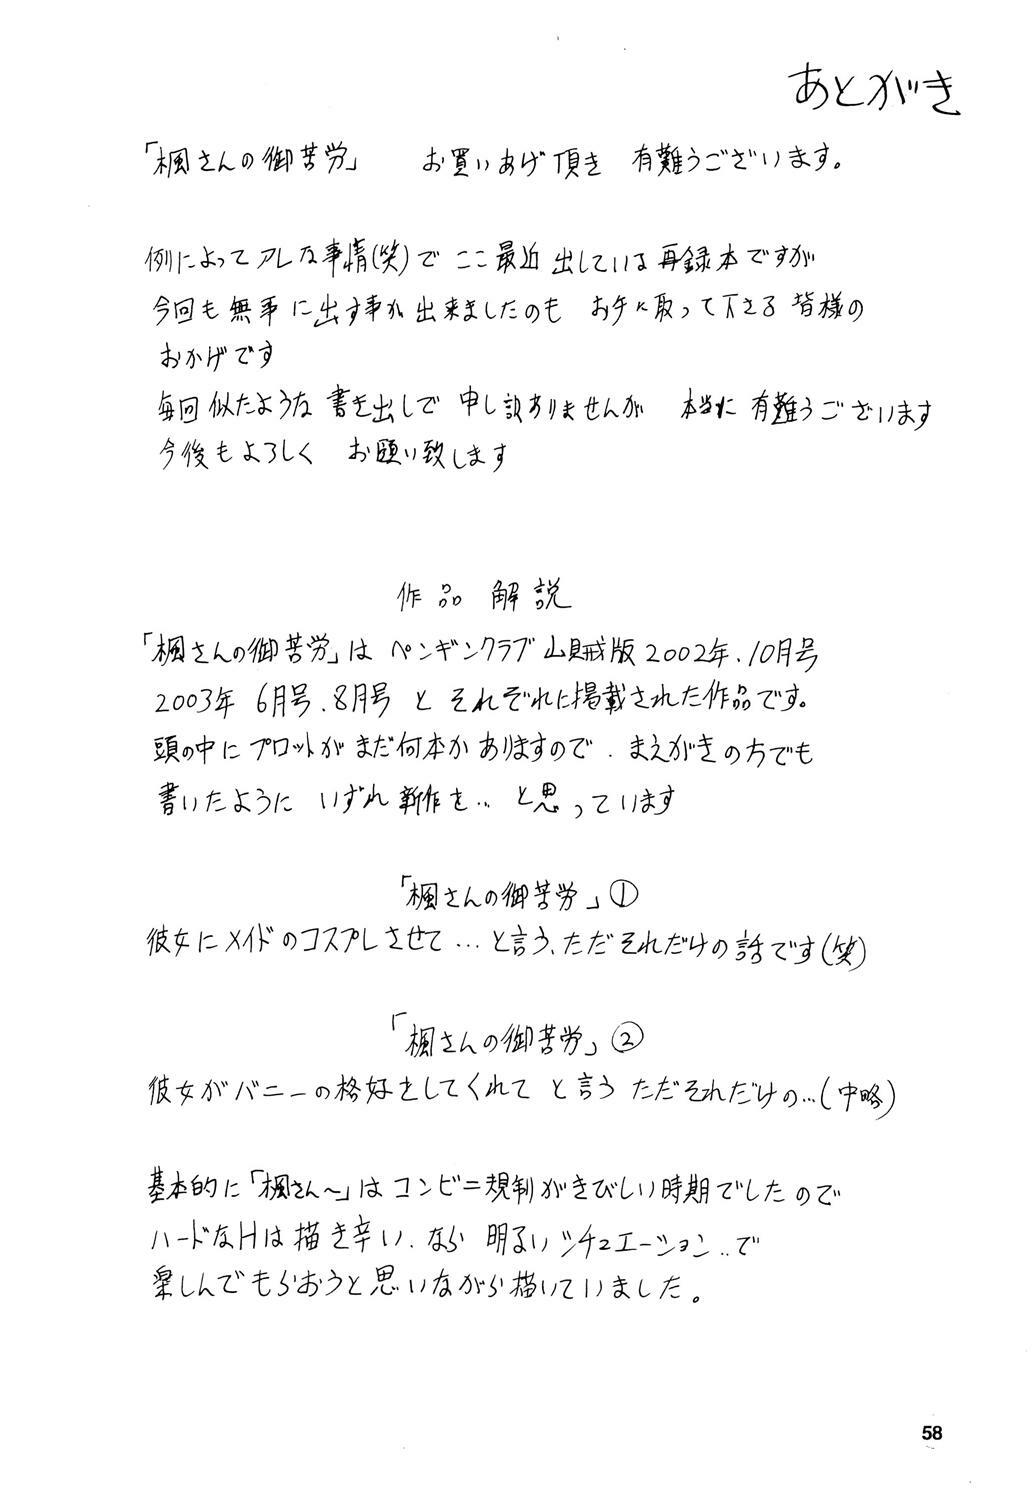 あとがき
「楓さんの御苦労」 お買いあげ頂き 有難うございます。
例によってアレな事情(笑)で ここ最近 出している再録本ですが
今回も無事に出す事が出来ましたのも お手に取って下さる 皆様の
おかげです
毎回似たような書き出しで 申し訳ありませんが 本当に有難うございます
今後もよろしく お願い致します
作品 解説
「楓さんの御苦労」は ペンギンクラブ山賊版2002年.10月号
2003年 6月号.8月号 と それぞれに掲載された作品です。
頭の中に プロットが まだ何本か ありますので . まえがきの方でも
書いたように いずれ 新作を… と思っています
「楓さんの御苦労」①
彼女にメイドのコスプレさせて…と言う、ただそれだけの話です(笑)
「楓さんの御苦労」②
彼女がバニーの格好をしてくれて と言う ただそれだけの…(中略)
基本的に「楓さん〜」はコンビニ規制がきびしい時期でしたので
ハードなHは描き辛い.なら 明るいシチュエーション..で
楽しんでもらおうと思いながら描いていました。
58